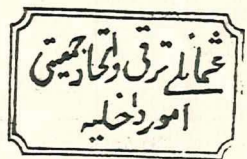 عثمانلی ترقی و اتحاد جمعیتی
امور داخلیه